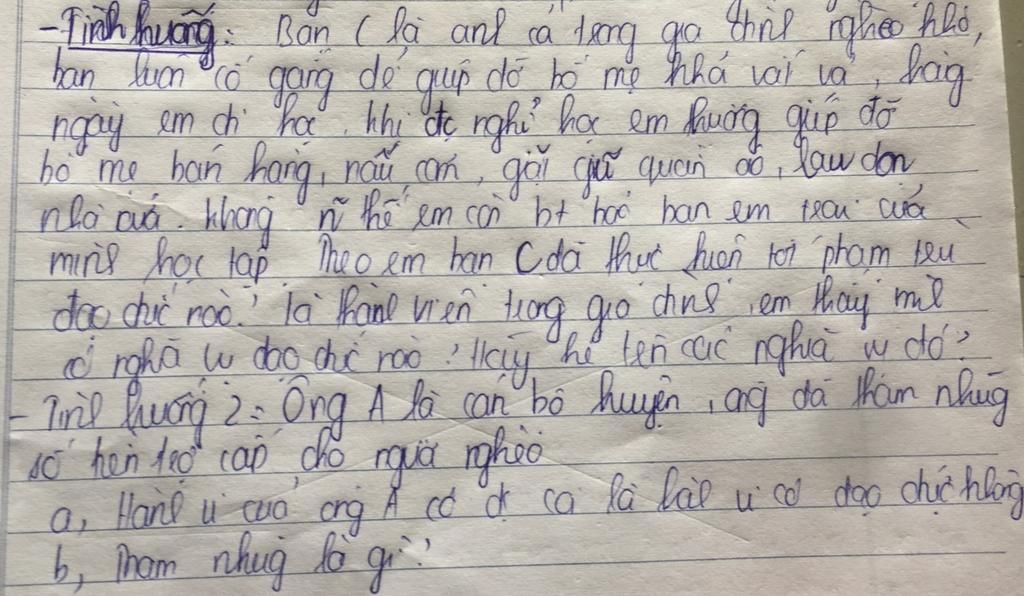 - Tình huống: Bạn C là anh cả trong gia đình nghèo khó,
bạn luôn cố gắng để giúp đỡ bố mẹ khá vất vả, hàng
ngày em đi học, khi đc nghỉ học em thường giúp đỡ
bố mẹ bán hàng, nấu cơm, gặt giũ quần áo, lau dọn
nhà cửa. Không n~ thế em còn bt bảo ban em trai của
mình học tập Theo em bạn C đã thực hiện tới phạm trù
đạo đức nào? Là thành viên trong gia đình, em thấy mình
có nghĩa vụ đạo đức nào? Hãy kể tên các nghĩa vụ đó?
- Tình huống 2: Ông A là cán bộ huyện, ông đã tham nhũng
số tiền trợ cấp cho người nghèo
a, Hành vi của ông A có đc coi là hành vi có đạo đức không
b, Tham nhũng là gì?